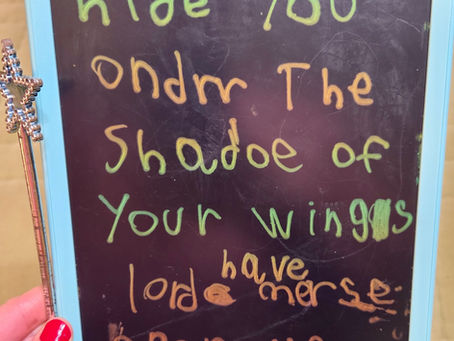 hide you
ondrr The
Shadoe of
Your wings
have
lord merse